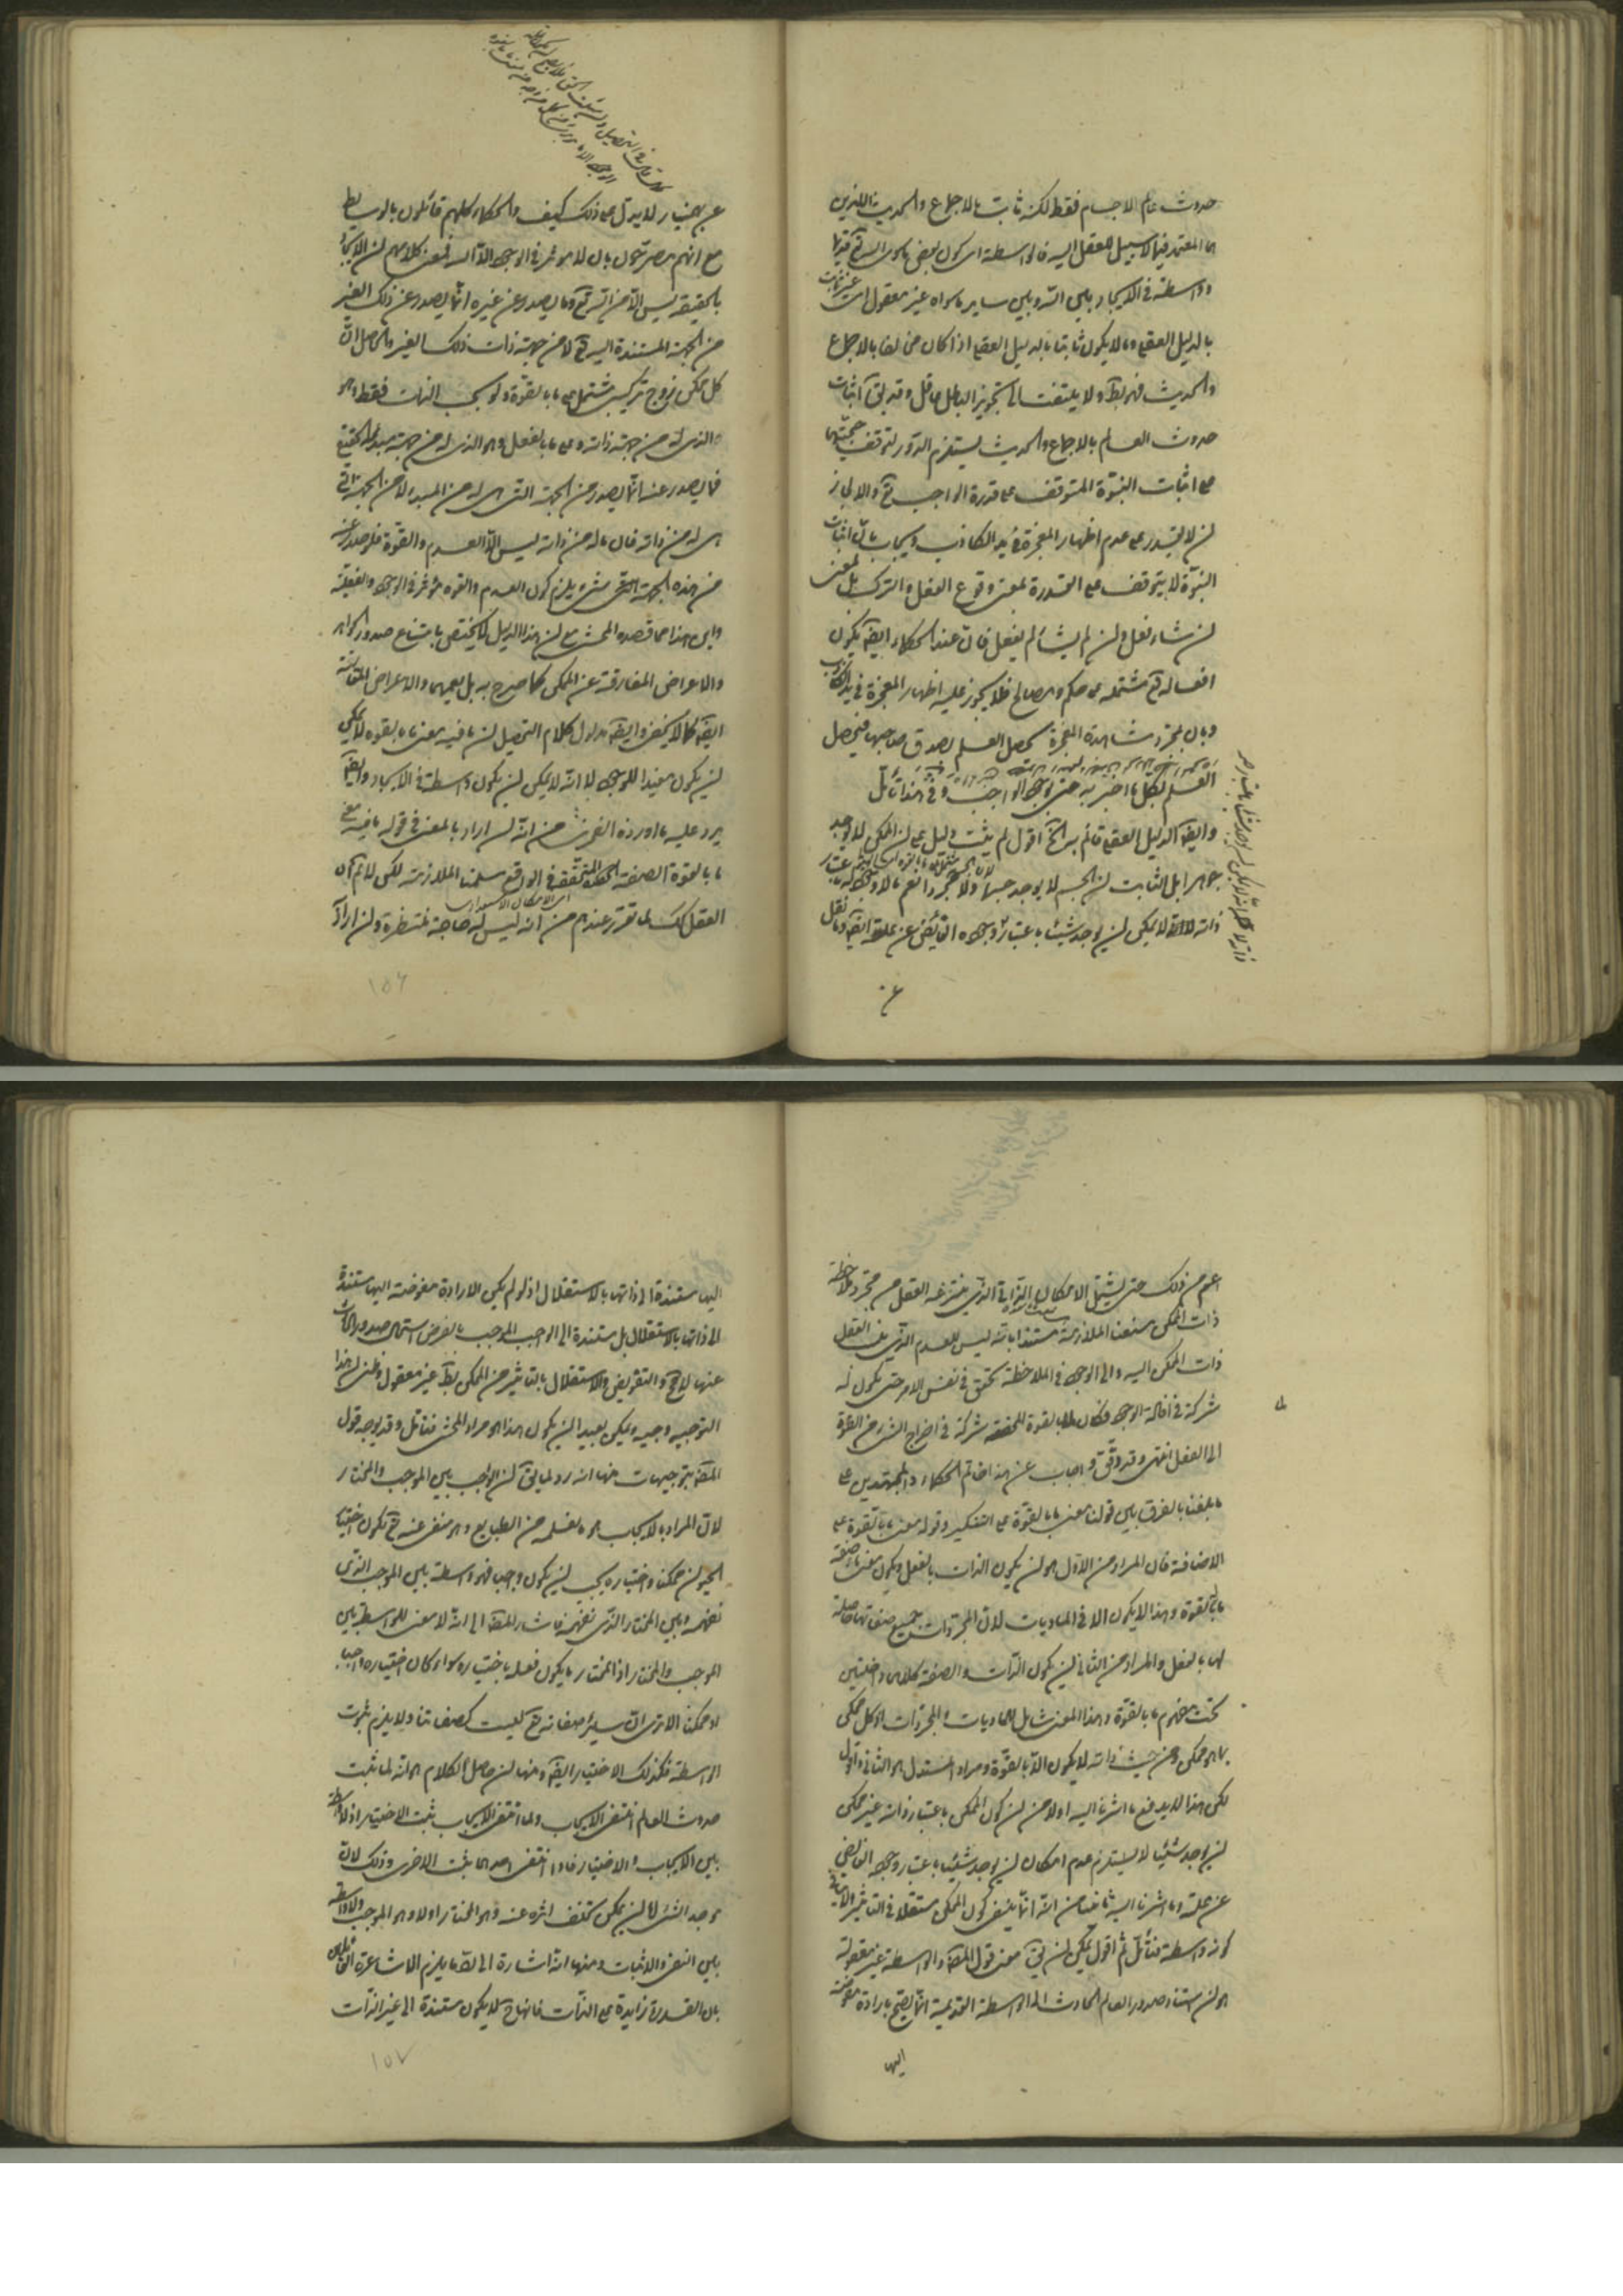 حدوث عالم الاجسام فقط لكنه ثابت بالاجماع والحديث اللذين
هما المعتمد فيما لا سبيل للعقل اليه فالواسطة اى كون بعض ما سوى الله تع قديما
وواسطة فى الايجاد بين الله وبين ساير ما سواه غير معقول اى غير ثابت
بالدليل العقلى وما لا يكون ثابتا بالدليل العقلى اذا كان مخالفا بالاجماع
والحديث فهو بط ولا يلتفت الى تجويز الباطل عاقل وقد يق اثبات
حدوث العالم بالاجماع والحديث يستلزم الدور لتوقف حجيتهما
على اثبات النبوة المتوقف على قدرة الواجب تع والا لجاز
ان لا يقدر على عدم اظهار المعجزة فى يد الكاذب ويجاب بان اثبات
النبوة لا يتوقف على القدرة بمعنى وقوع الفعل والترك بل بمعنى
ان شاء فعل وان لم يشأ لم يفعل فان عند الحكماء ايضا يكون
افعاله تع مشتملة على حكم ومصالح فلا يجوز عليه اظهار المعجزة فى يد الكاذب
وبان بمجرد مشاهدة المعجزة يحصل العلم بصدق صاحبها فيحصل
العلم بكل ما اخبر به حتى بوجود الواجب وفى هذا تأمل
وايضا الدليل العقلى قائم الخ اقول لم يثبت دليل على ان الممكن لا يوجد
جوهرا بل الثابت ان الجسم لا يوجد جسما ولا مجردا نعم
ذاته لا يمكن ان يوجد شيئا باعتبار وجوده الفائض عن علته ايضا وما نقل
عن
عن بهمنيار لا يدل على ذلك كيف والحكماء كلهم قائلون بالوسايط
مع انهم مصرحون بان لا مؤثر فى الوجود الا الله فمعنى كلامهم ان الايجاد
بالحقيقة ليس الا من الله تع وما يصدر عن غيره انما يصدر عن ذلك الغير
من الجهة المستندة اليه تع لا من جهة ذات ذلك الغير والحاصل ان
كل ممكن زوج تركيبى مشتمل على ما بالقوة ولو بحسب الذات فقط وهو
الذى له من جهة ذاته وعلى ما بالفعل وهو الذى له من جهة مبدئه الحقيقى
فما يصدر عنه انما يصدر من الجهة التى هى له من المبدء لا من الجهة التى
هى له من ذاته فان ما له من ذاته ليس الا العدم والقوة فلو صدر عنه
من هذه الجهة شىء يلزم كون العدم والقوة مؤثرة فى الوجود والفعلية
واين هذا مما قصده المحشى مع ان هذا الدليل لا يختص بامتناع صدور الجواهر
والاعراض المفارقة عن الممكن كما صرح به بل يعمهما والاعراض المقارنة
ايضا كما لا يخفى وايضا مدلول كلام التحصيل ان ما فيه معنى ما بالقوة لا يمكن
ان يكون مفيدا للوجود لا انه لا يمكن ان يكون واسطة فى الايجاد وايضا
يرد عليه ما اورده من انه ان اراد بالمعنى فى قوله ما فيه معنى
ما بالقوة الصفة المتحققة فى الواقع سلمنا الملازمة لكن لا نم ان
العقل كك لما تقرر عندهم من انه ليس له حاجة منتظرة وان اراد
١٥٦
اعم من ذلك حتى يشمل الامكان الذاتى الذى ينتزعه العقل من مجرد ملاحظة
ذات الممكن منعنا الملازمة مستندا بانه ليس للعدم الذى ينسب العقل
ذات الممكن اليه والى الوجود فى الملاحظة تحقق فى نفس الامر حتى يكون له
شركة فى افادة الوجود شركة فى اخراج الشىء من القوة
الى الفعل انتهى وقد دقق واجاب عن هذا خاتم الحكماء والمجتهدين على
ما بلغنا بالفرق بين قولنا معنى ما بالقوة على التنكير وقوله معنى ما بالقوة على
الاضافة فان المراد من الاول هو ان يكون الذات بالفعل ويكون معنى ما وصفة
ما بالقوة وهذا لا يكون الا فى الماديات لان المجردات جميع صفاتها حاصلة
لها بالفعل والمراد من الثانى ان يكون الذات والصفة كلاهما داخلين
تحت مفهوم ما بالقوة وهذا المعنى شامل للماديات والمجردات اذ كل ممكن
بما هو ممكن ومن حيث ذاته لا يكون الا بالقوة ومراد المستدل هو الثانى واقول
لكن هذا لا يدفع ما اشرنا اليه اولا من ان كون الممكن باعتبار ذاته غير ممكن
ان يوجد شيئا لا يستلزم عدم امكان ان يوجد شيئا باعتبار وجوده الفائض
عن علته وما اشرنا اليه ثانيا من انه انما ينفى كون الممكن مستقلا فى التأثير لا
كونه واسطة فتأمل ثم اقول يمكن ان يق معنى قول المصنف والواسطة غير معقولة
هو ان استناد صدور العالم الحادث الى الواسطة القديمة انما يصح بارادة مفوضة
اليها
اليها مستندة الى ذاتها بالاستقلال اذ لو لم يكن الارادة مفوضة اليها مستندة
الى ذاتها بالاستقلال بل مستندة الى الواجب الموجب بالفرض استحال صدور الحادث
عنها لا مح والتفويض والاستقلال بالتأثير من الممكن بط غير معقول وظنى ان هذا
التوجيه وجيه ويكن بعيدا ان يكون هذا هو مراد المحشى فتأمل وقد يوجه قول
المصنف بتوجيهات منها انه رد لما يق ان الواجب بين الموجب والمختار
لان المراد بالايجاب هو ما نعلمه من الطبايع وهو منفى عنه تع ويكون اختيار
الحيوان ممكنا واختياره يجب ان يكون واجبا فهو واسطة بين الموجب الذى
نفهمه وبين المختار الذى نفهمه فاشار المصنف الى انه لا معنى للواسطة بين
الموجب والمختار اذ المختار ما يكون فعله باختياره سواء كان اختياره واجبا
او ممكنا الا ترى ان سائر صفاته تع ليست كصفاتنا ولا يلزم ثبوت
الواسطة فكذلك الاختيار ايضا ومنها ان حاصل الكلام هو انه لما ثبت
حدوث العالم انتفى الايجاب ولما انتفى الايجاب ثبت الاختيار اذ لا واسطة
بين الايجاب والاختيار فاذا انتفى احدهما ثبت الاخرى وذلك لان
موجد الشىء اما ان يمكن تخلف اثره عنه فهو المختار او لا وهو الموجب ولا واسطة
بين النفى والاثبات ومنها انه اشارة الى ما يلزم الاشاعرة القائلين
بان القدرة زايدة على الذات فانها ح لا يكون مستندة الى غير الذات
١٥٧